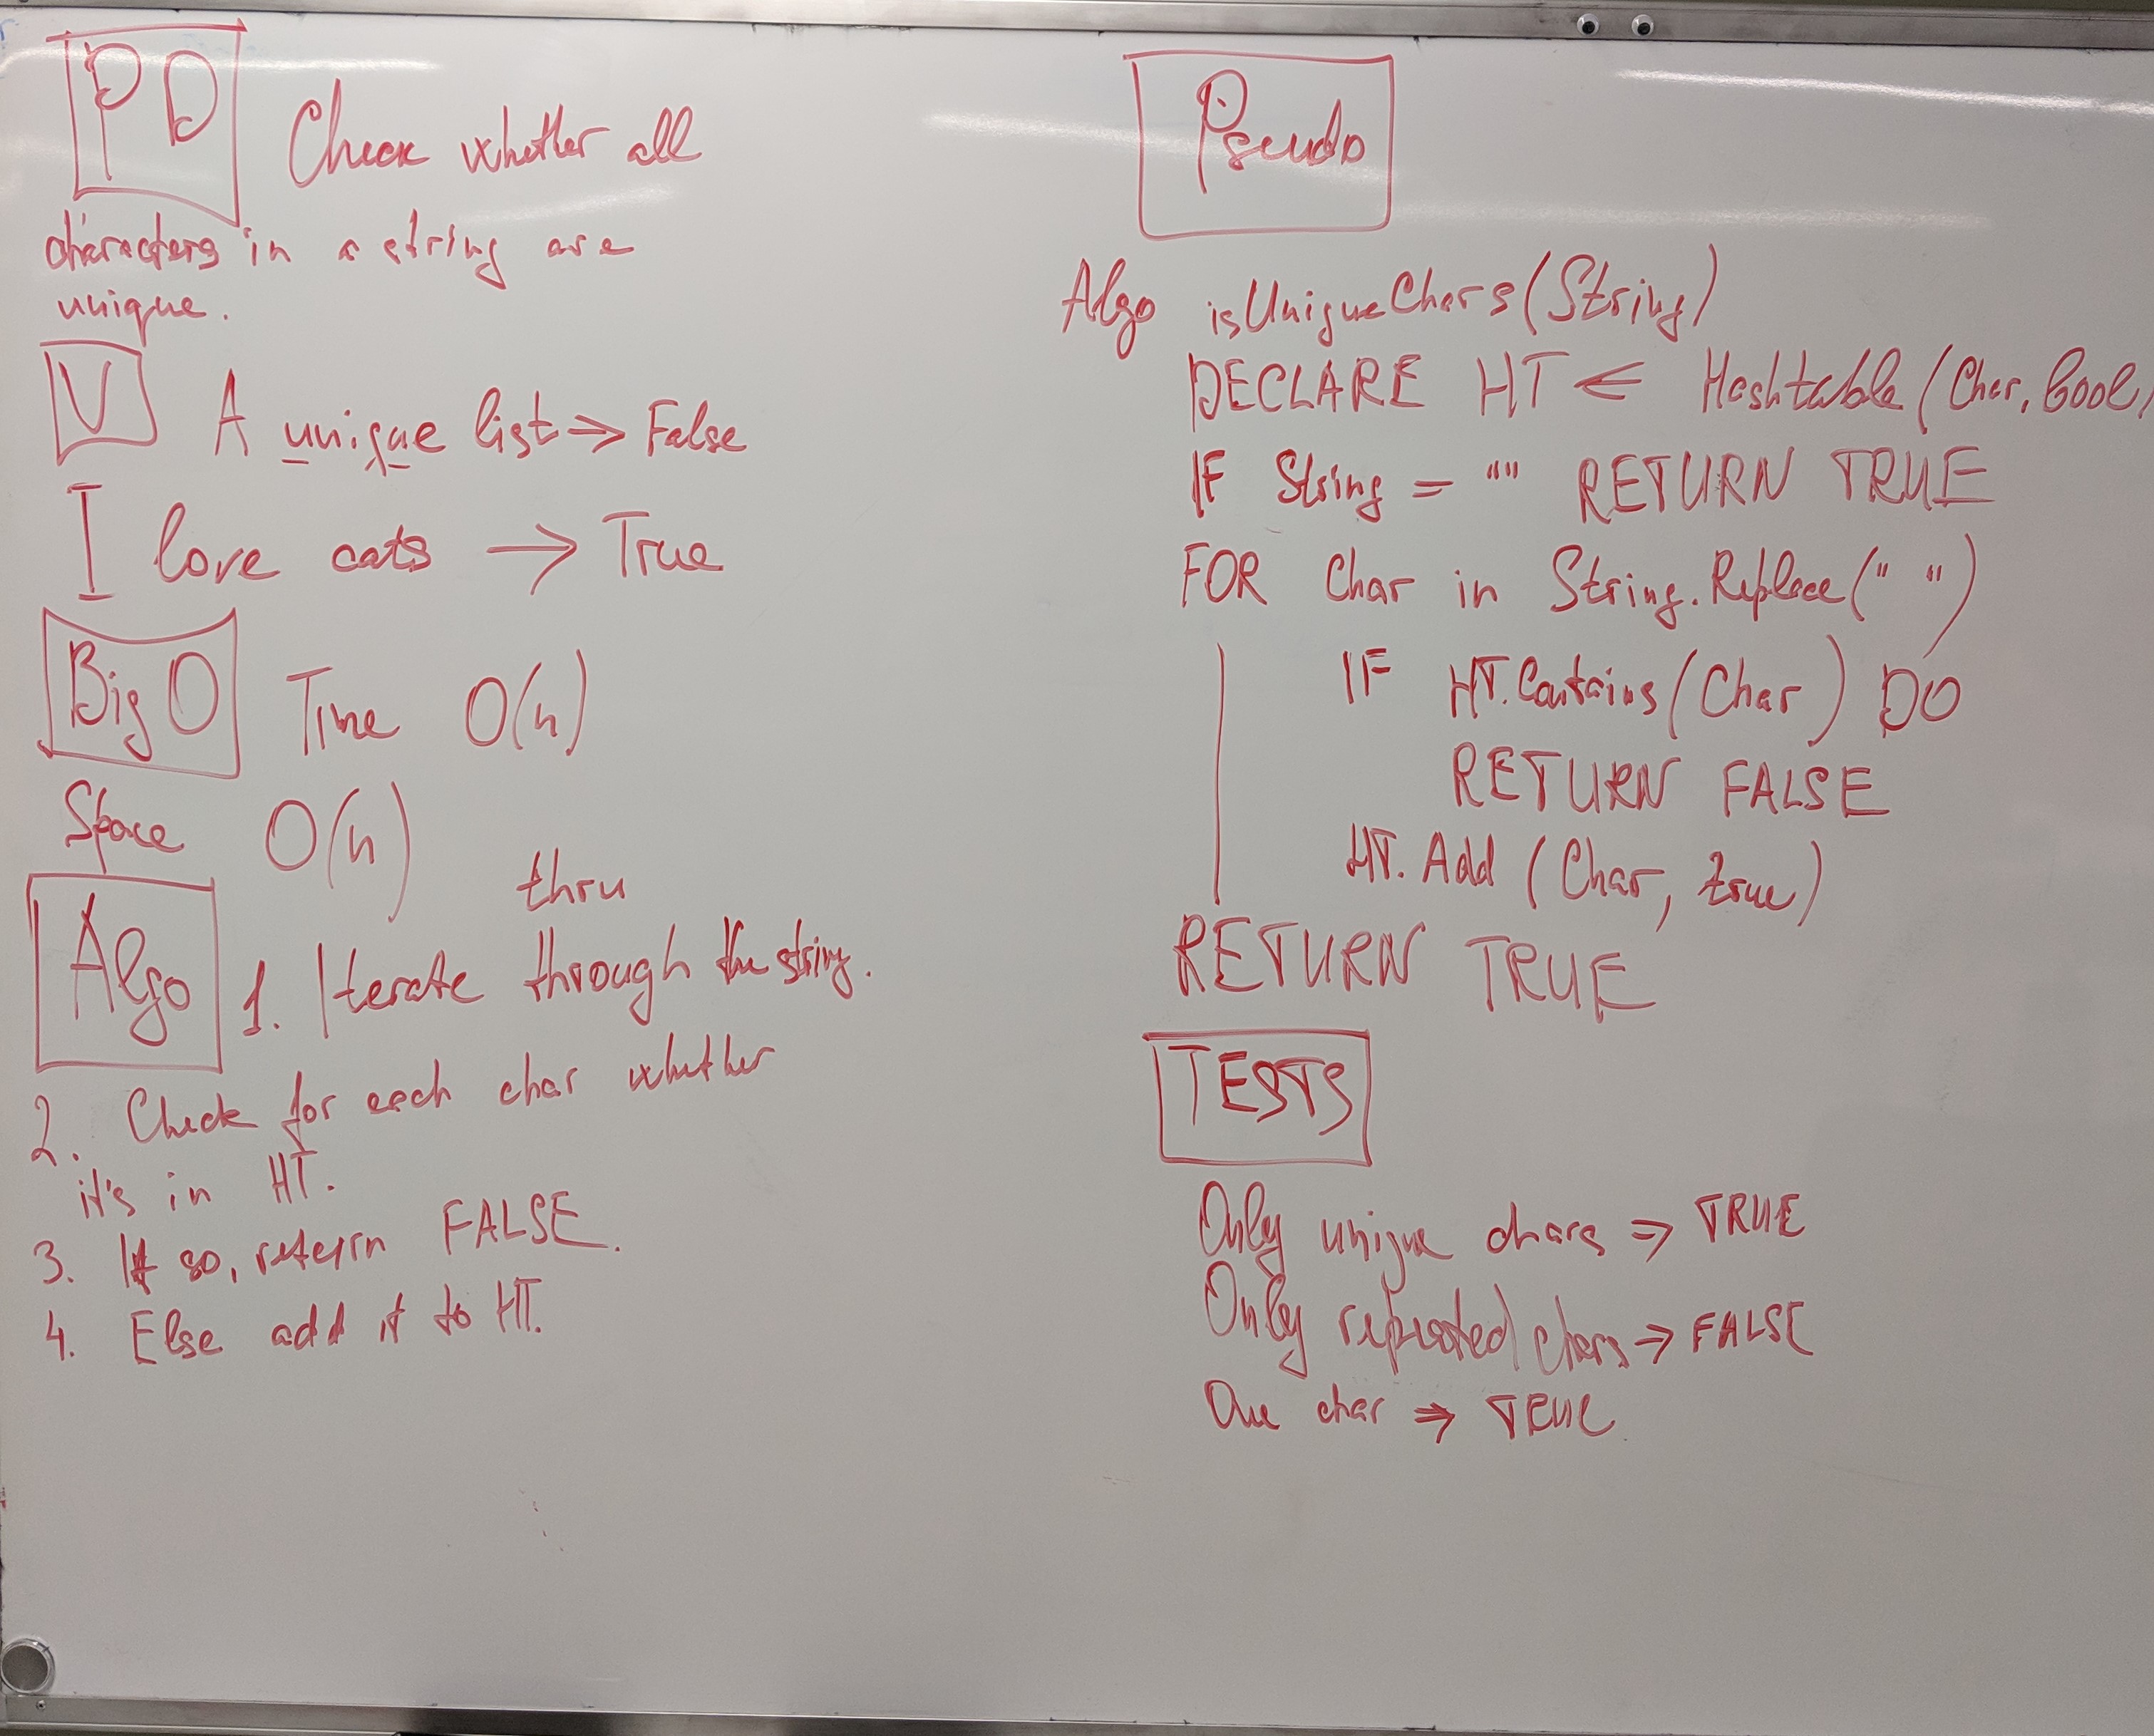 PD
Check whether all
characters in a string are
unique.
V
A unique list => False
I love cats → True
Big O
Time O(n)
Space O(n)
thru
Algo
1. Iterate through the string.
2. Check for each char whether
it's in HT.
3. If so, return FALSE.
4. Else add it to HT.
Pseudo
Algo isUniqueChars(String)
DECLARE HT <= Hashtable(Char, bool)
IF String = "" RETURN TRUE
FOR Char in String.Replace(" ")
IF HT.Contains(Char) DO
RETURN FALSE
HT.Add (Char, true)
RETURN TRUE
TESTS
Only unique chars => TRUE
Only repeated chars => FALSE
One char => TRUE